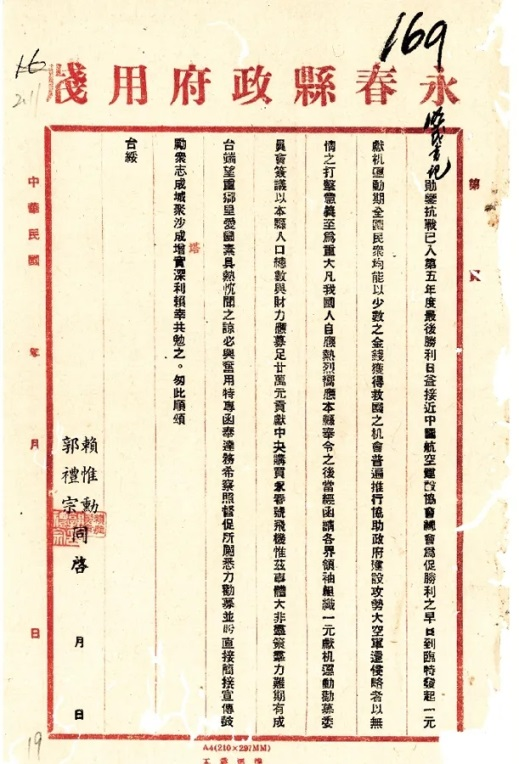 169
永春縣政府用牋
第
勛鑒抗戰已入第五年度最後勝利日益接近中國航空建設協會總會為促勝利之早日到臨特發起一元
献机運動期全國民衆均能以少數之金錢獲得救國之机會普遍推行協助政府建設攻勢大空軍還侵略者以無
情之打擊意義至為重大凡我國人自應熱烈響應本縣奉令之後當經函請各界領袖組織一元献机運動勸募委
員會簽議以本縣人口總數與財力應募足廿萬元貢献中央購買永春號飛機惟茲事體大非羣策羣力難期有成
台端望重鄉里愛國素具熱忱聞之諒必興奮用特專函奉達務希察照督促所屬悉力勸募並盼直接簡接宣傳鼓
勵衆志成城聚沙成增實深利賴幸共勉之。匆此順頌
塔
台綏
賴惟勳
郭禮宗
同啓
月 日
中華民國 年 月 日
19
A4(210×297MM)